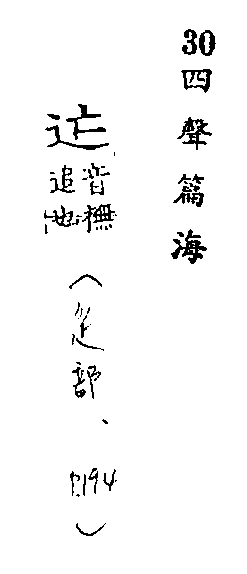 30 四聲篇海
音撫
追也
(辵部、P.194)